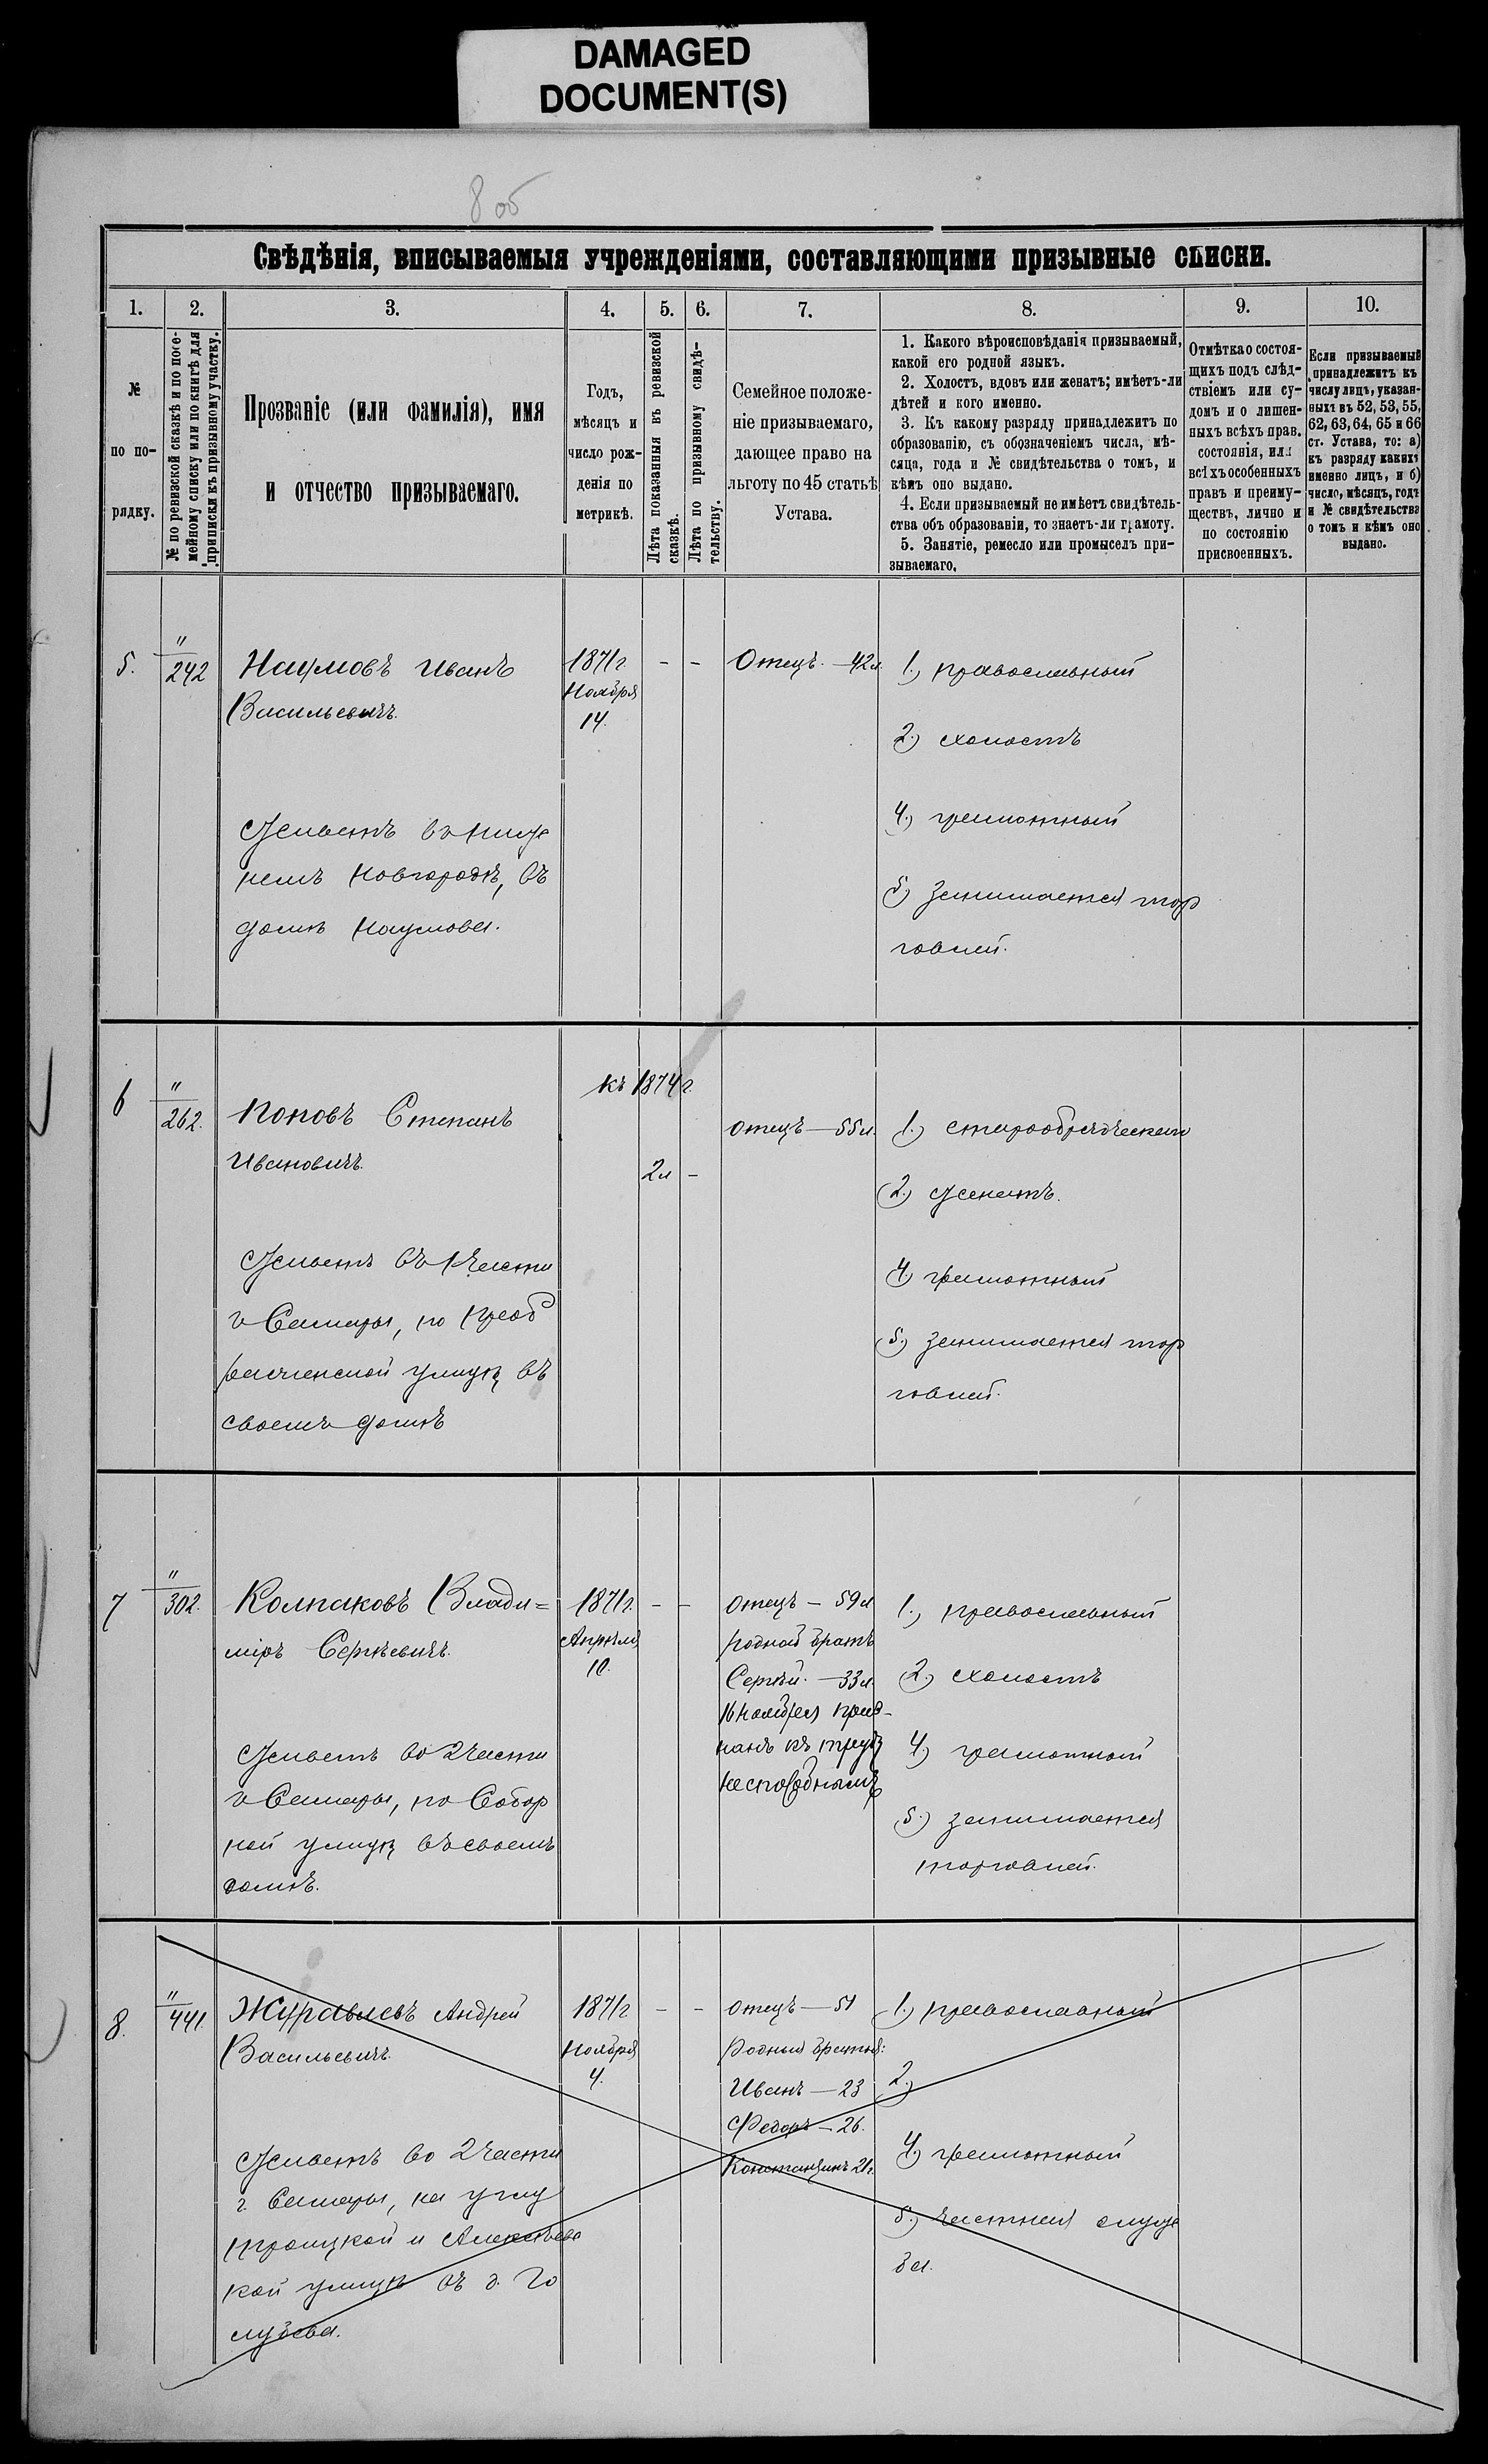 DAMAGED
DOCUMENT(S)
8 об
Свѣдѣнія, вписываемыя учрежденіями, составляющими призывные списки.
1.
2.
3.
4.
5.
6.
7.
8.
9.
10.
№
по по-
рядку.
№ по ревизской сказкѣ и по посе-
мейному списку или по книгѣ для
приписки къ призывному участку.
Прозваніе (или фамилія), имя
и отчество призываемаго.
Годъ,
мѣсяцъ и
число рож-
денія по
метрикѣ.
Лѣта показанныя въ ревизской
сказкѣ.
Лѣта по призывному свидѣ-
тельству.
Семейное положе-
ніе призываемаго,
дающее право на
льготу по 45 статьѣ
Устава.
1. Какого вѣроисповѣданія призываемый,
какой его родной языкъ.
2. Холостъ, вдовъ или женатъ; имѣетъ-ли
дѣтей и кого именно.
3. Къ какому разряду принадлежитъ по
образованію, съ обозначеніемъ числа, мѣ-
сяца, года и № свидѣтельства о томъ, и
кѣмъ оно выдано.
4. Если призываемый не имѣетъ свидѣтель-
ства объ образованіи, то знаетъ-ли грамоту.
5. Занятіе, ремесло или промыселъ при-
зываемаго.
Отмѣтка о состоя-
щихъ подъ слѣд-
ствіемъ или су-
домъ и о лишен-
ныхъ всѣхъ прав.
состоянія, или
всѣхъ особенныхъ
правъ и преиму-
ществъ, лично и
по состоянію
присвоенныхъ.
Если призываемый
принадлежитъ къ
числу лицъ, указан-
ныхъ въ 52, 53, 55,
62, 63, 64, 65 и 66
ст. Устава, то: а)
къ разряду какихъ
именно лицъ, и б)
число, мѣсяцъ, годъ
и № свидѣтельства
о томъ и кѣмъ оно
выдано.
5.
"
242
Наумовъ Иванъ
Васильевичъ.
Живетъ въ Ниж
немъ Новгородѣ, въ
домѣ Наумова.
1871 г.
Ноября
14.
-
-
Отецъ. — 42 л.
1.) православный
2.) холостъ
4.) грамотный
5) занимается тор
говлей.
6
"
262.
Поповъ Степанъ
Ивановичъ.
Живетъ въ 1 части
г. Самары, по Преоб
раженской улицѣ въ
своемъ домѣ
къ 1874 г.
2 л
-
отецъ — 55 л.
1.) старообрядческаго
2.) женатъ.
4) грамотный
5.) занимается тор
говлей.
7
"
302.
Колпаковъ Влади=
міръ Сергѣевичъ.
Живетъ во 2 части
г. Самары, по Собор
ной улицѣ въ своемъ
домѣ.
1871 г.
Апрѣля
10.
-
-
отецъ — 59 л
родной братъ
Сергѣй. — 33 л.
16 ноября приз-
нанъ къ труду
неспособнымъ
1.) православный
2.) холостъ
4.) грамотный
5.) занимается
торговлей.
8.
"
441.
Журавлевъ Андрей
Васильевичъ.
Живетъ во 2 части
г. Самары, на углу
Троицкой и Алексѣевс
кой улицѣ въ д. Го
лубева.
1871 г
Ноября
4.
-
-
отецъ — 51
Родныя братья:
Иванъ — 23
Федоръ — 26.
Константинъ 21 г.
1.) православный
2.)
4.) грамотный
5.) частная служ
ба.